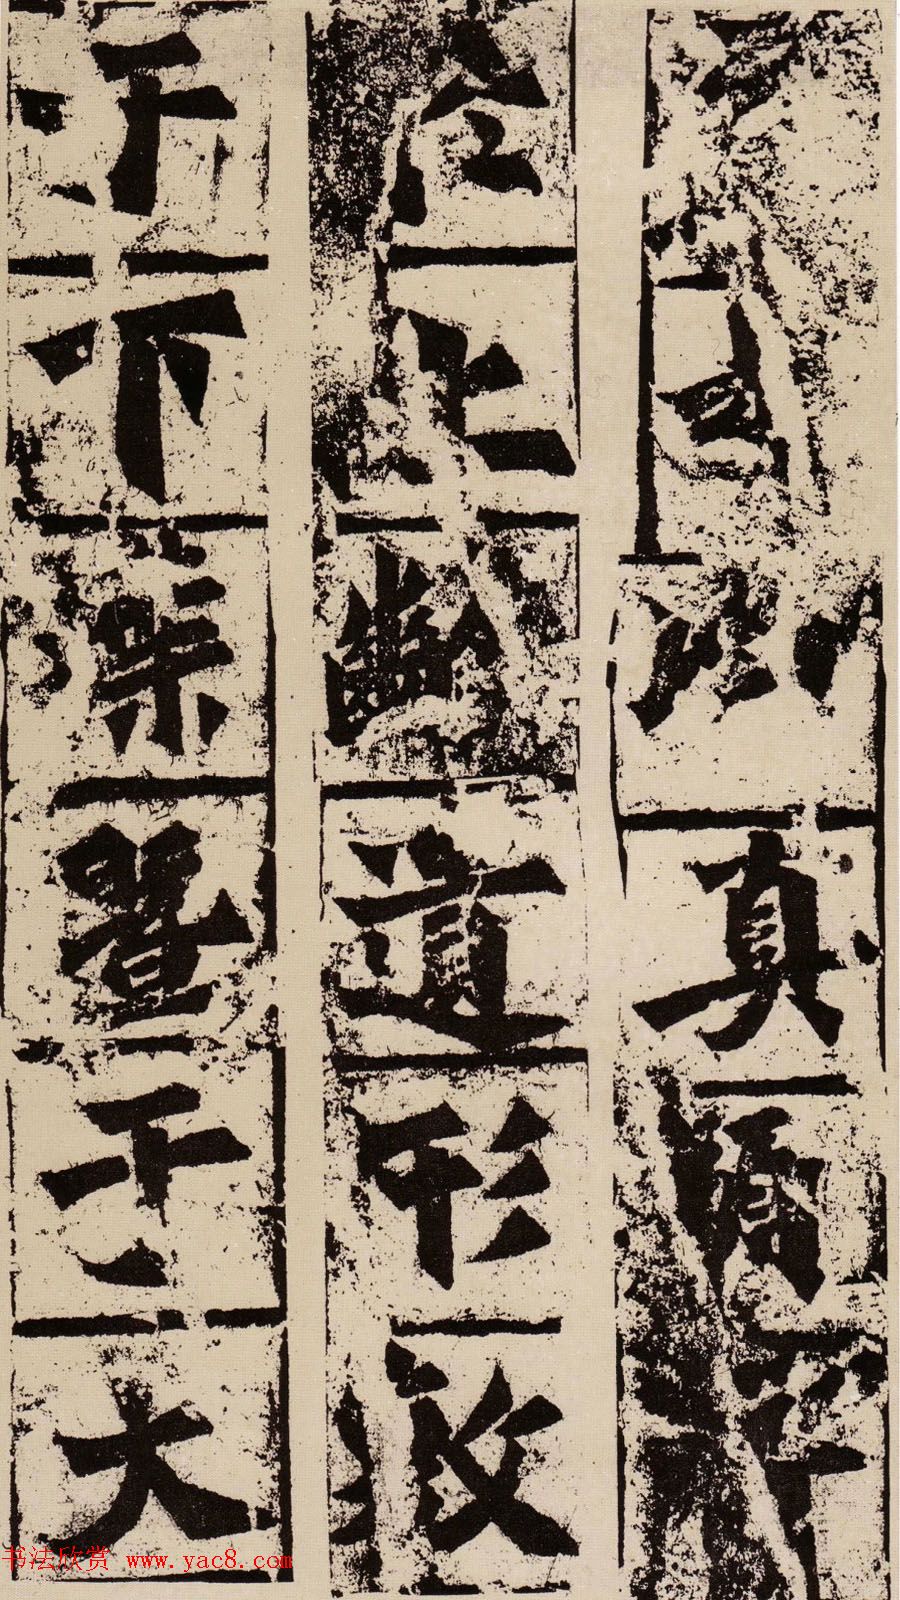 以真顏
於上齡遺形敷
于下葉暨于大
书法欣赏 www.yac8.com